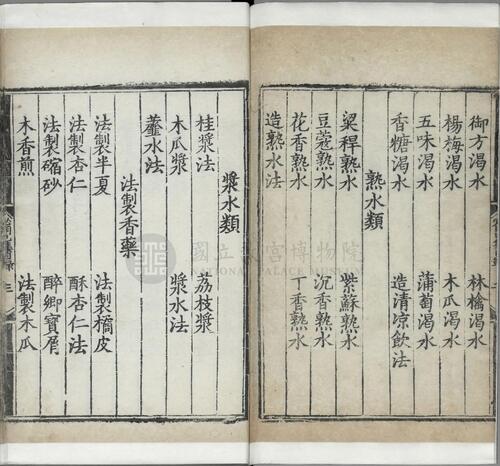 御方渴水 林檎渴水
楊梅渴水 木瓜渴水
五味渴水 蒲萄渴水
香糖渴水 造清涼飲法
熟水類
粱稈熟水 紫蘇熟水
豆蔻熟水 沉香熟水
花香熟水 丁香熟水
造熟水法
漿水類
桂漿法 荔枝漿
木瓜漿 漿水法
虀水法
法製香藥
法製半夏 法製橘皮
法製杏仁 酥杏仁法
法製縮砂 醉鄉寶屑
木香煎 法製木瓜
國立故宮博物院
NATIONAL PALACE MUSEUM